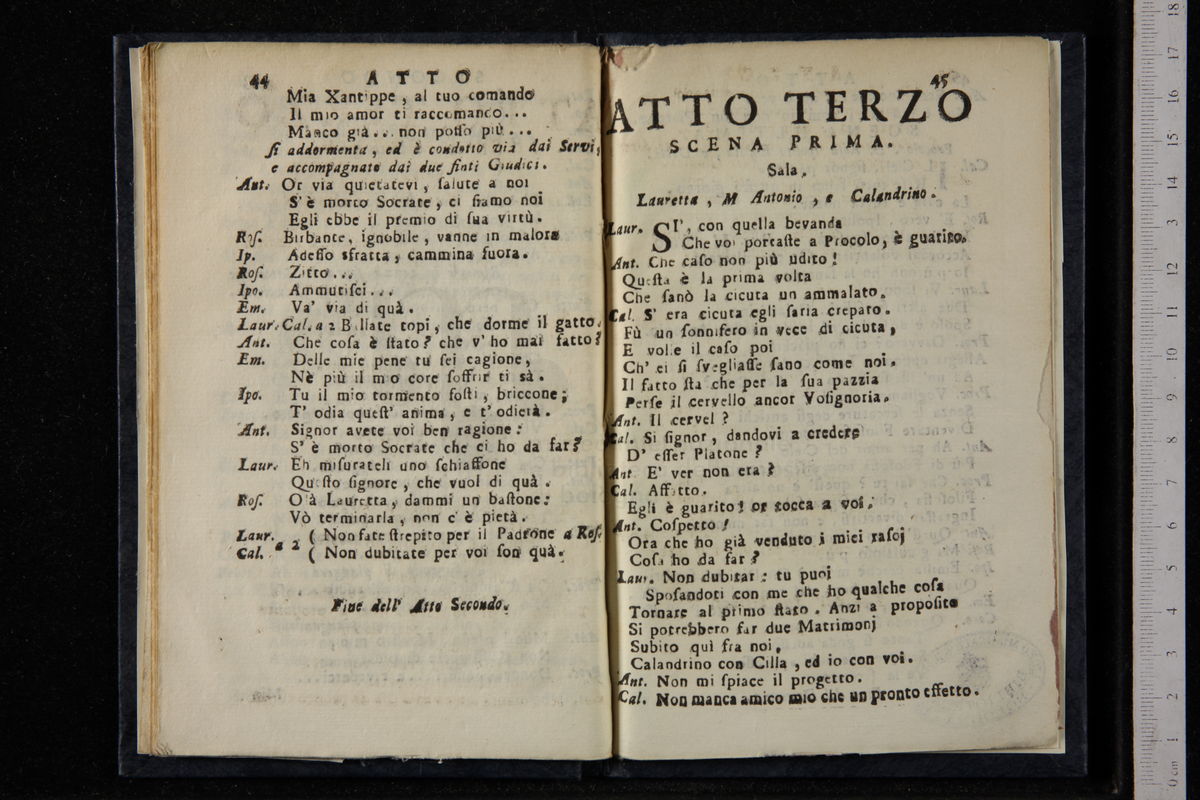 44 ATTO
Mia Xantippe, al tuo comando
Il mio amor ti raccomanco...
Manco già... non posso più...
si addormenta, ed è condotto via dai Servi,
e accompagnato dai due finti Giudici.
Ant. Or via quietatevi, salute a noi
S'è morto Socrate, ci siamo noi
Egli ebbe il premio di sua virtù.
Ros. Birbante, ignobile, vanne in malora
Ip. Adesso sfratta, cammina fuora.
Ros. Zitto...
Ipo. Ammutisci...
Em. Va' via di quà.
Laur. Cal. a 2 Ballate topi, che dorme il gatto.
Ant. Che cosa è stato? che v'ho mai fatto?
Em. Delle mie pene tu sei cagione,
Nè più il mio core soffrir ti sà.
Ipo. Tu il mio tormento fosti, briccone;
T'odia quest'anima, e t'odierà.
Ant. Signor avete voi ben ragione:
S'è morto Socrate che ci ho da far?
Laur. Eh misurateli uno schiaffone
Questo signore, che vuol di quà.
Ros. Olà Lauretta, dammi un bastone:
Vò terminarla, non c'è pietà.
Laur. ( Non fate strepito per il Padrone a Ros.
Cal. a 2 ( Non dubitate per voi son quà.
Fine dell' Atto Secondo.
45
ATTO TERZO
SCENA PRIMA.
Sala.
Lauretta, M Antonio, e Calandrino.
Laur. SI', con quella bevanda
Che voi portaste a Procolo, è guarito.
Ant. Che caso non più udito!
Questa è la prima volta
Che sanò la cicuta un ammalato.
Cal. S'era cicuta egli saria crepato.
Fù un sonnifero in vece di cicuta,
E volle il caso poi
Ch'ei si svegliasse sano come noi.
Il fatto sta che per la sua pazzia
Perse il cervello ancor Vosignoria.
Ant. Il cervel?
Cal. Si signor, dandovi a credere
D'esser Platone?
Ant. E' ver non era?
Cal. Affatto.
Egli è guarito! or tocca a voi.
Ant. Cospetto!
Ora che ho già venduto i miei rasoj
Cosa ho da far?
Laur. Non dubitar: tu puoi
Sposandoti con me che ho qualche cosa
Tornare al primo stato. Anzi a proposito
Si potrebbero far due Matrimonj
Subito quì fra noi,
Calandrino con Cilla, ed io con voi.
Ant. Non mi spiace il progetto.
Cal. Non manca amico mio che un pronto effetto.